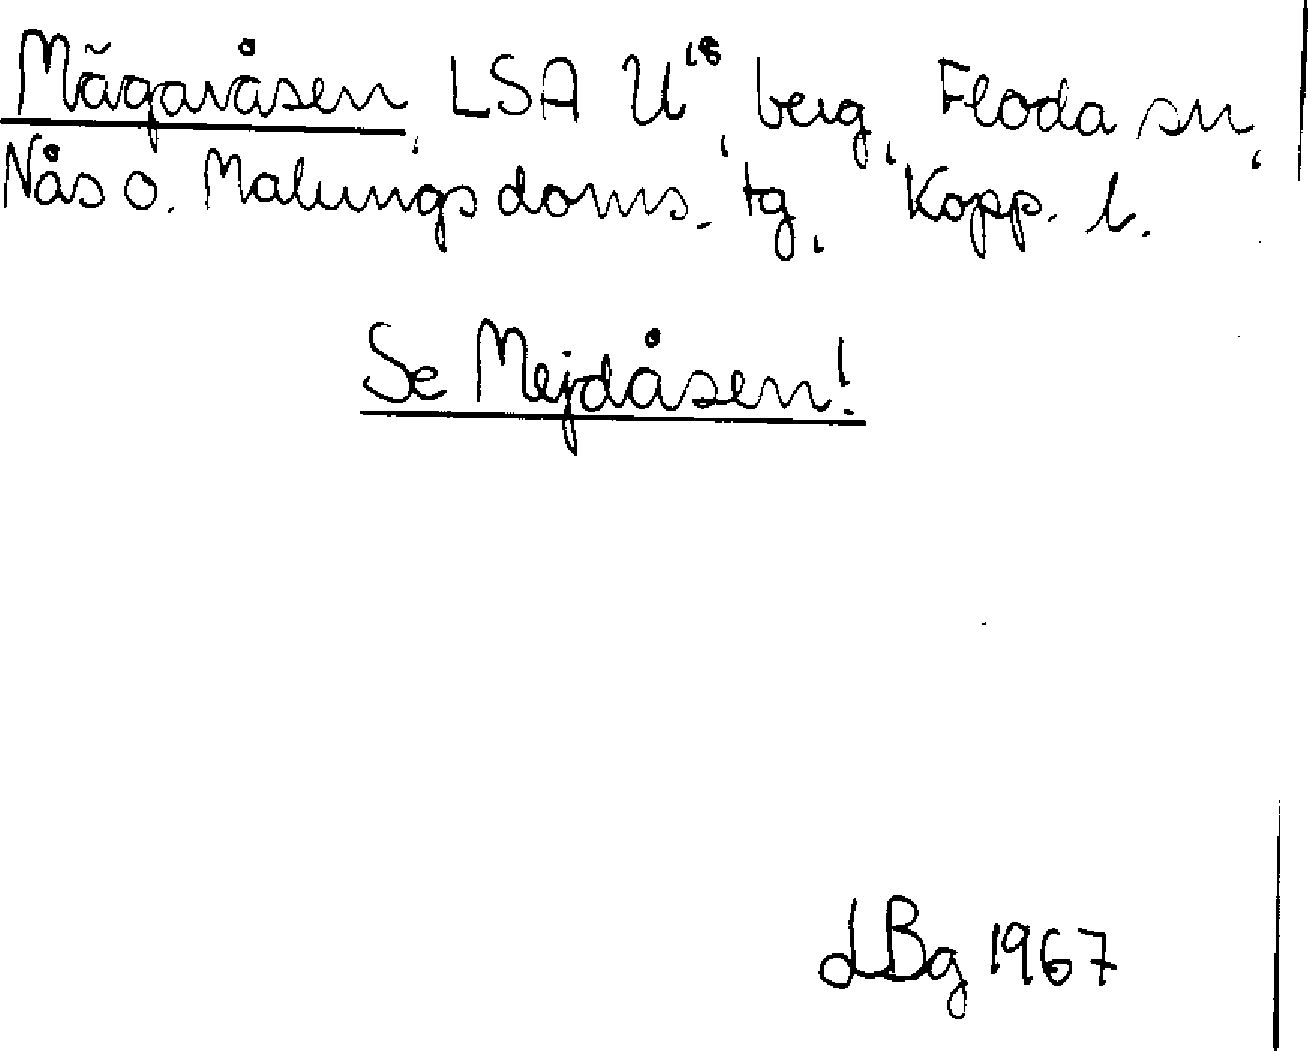 Mãgaråsen, LSA U¹⁸, berg, Floda sn,
Nås o. Malungs doms. tg, Kopp. l.
Se Mejdåsen!
LBg 1967